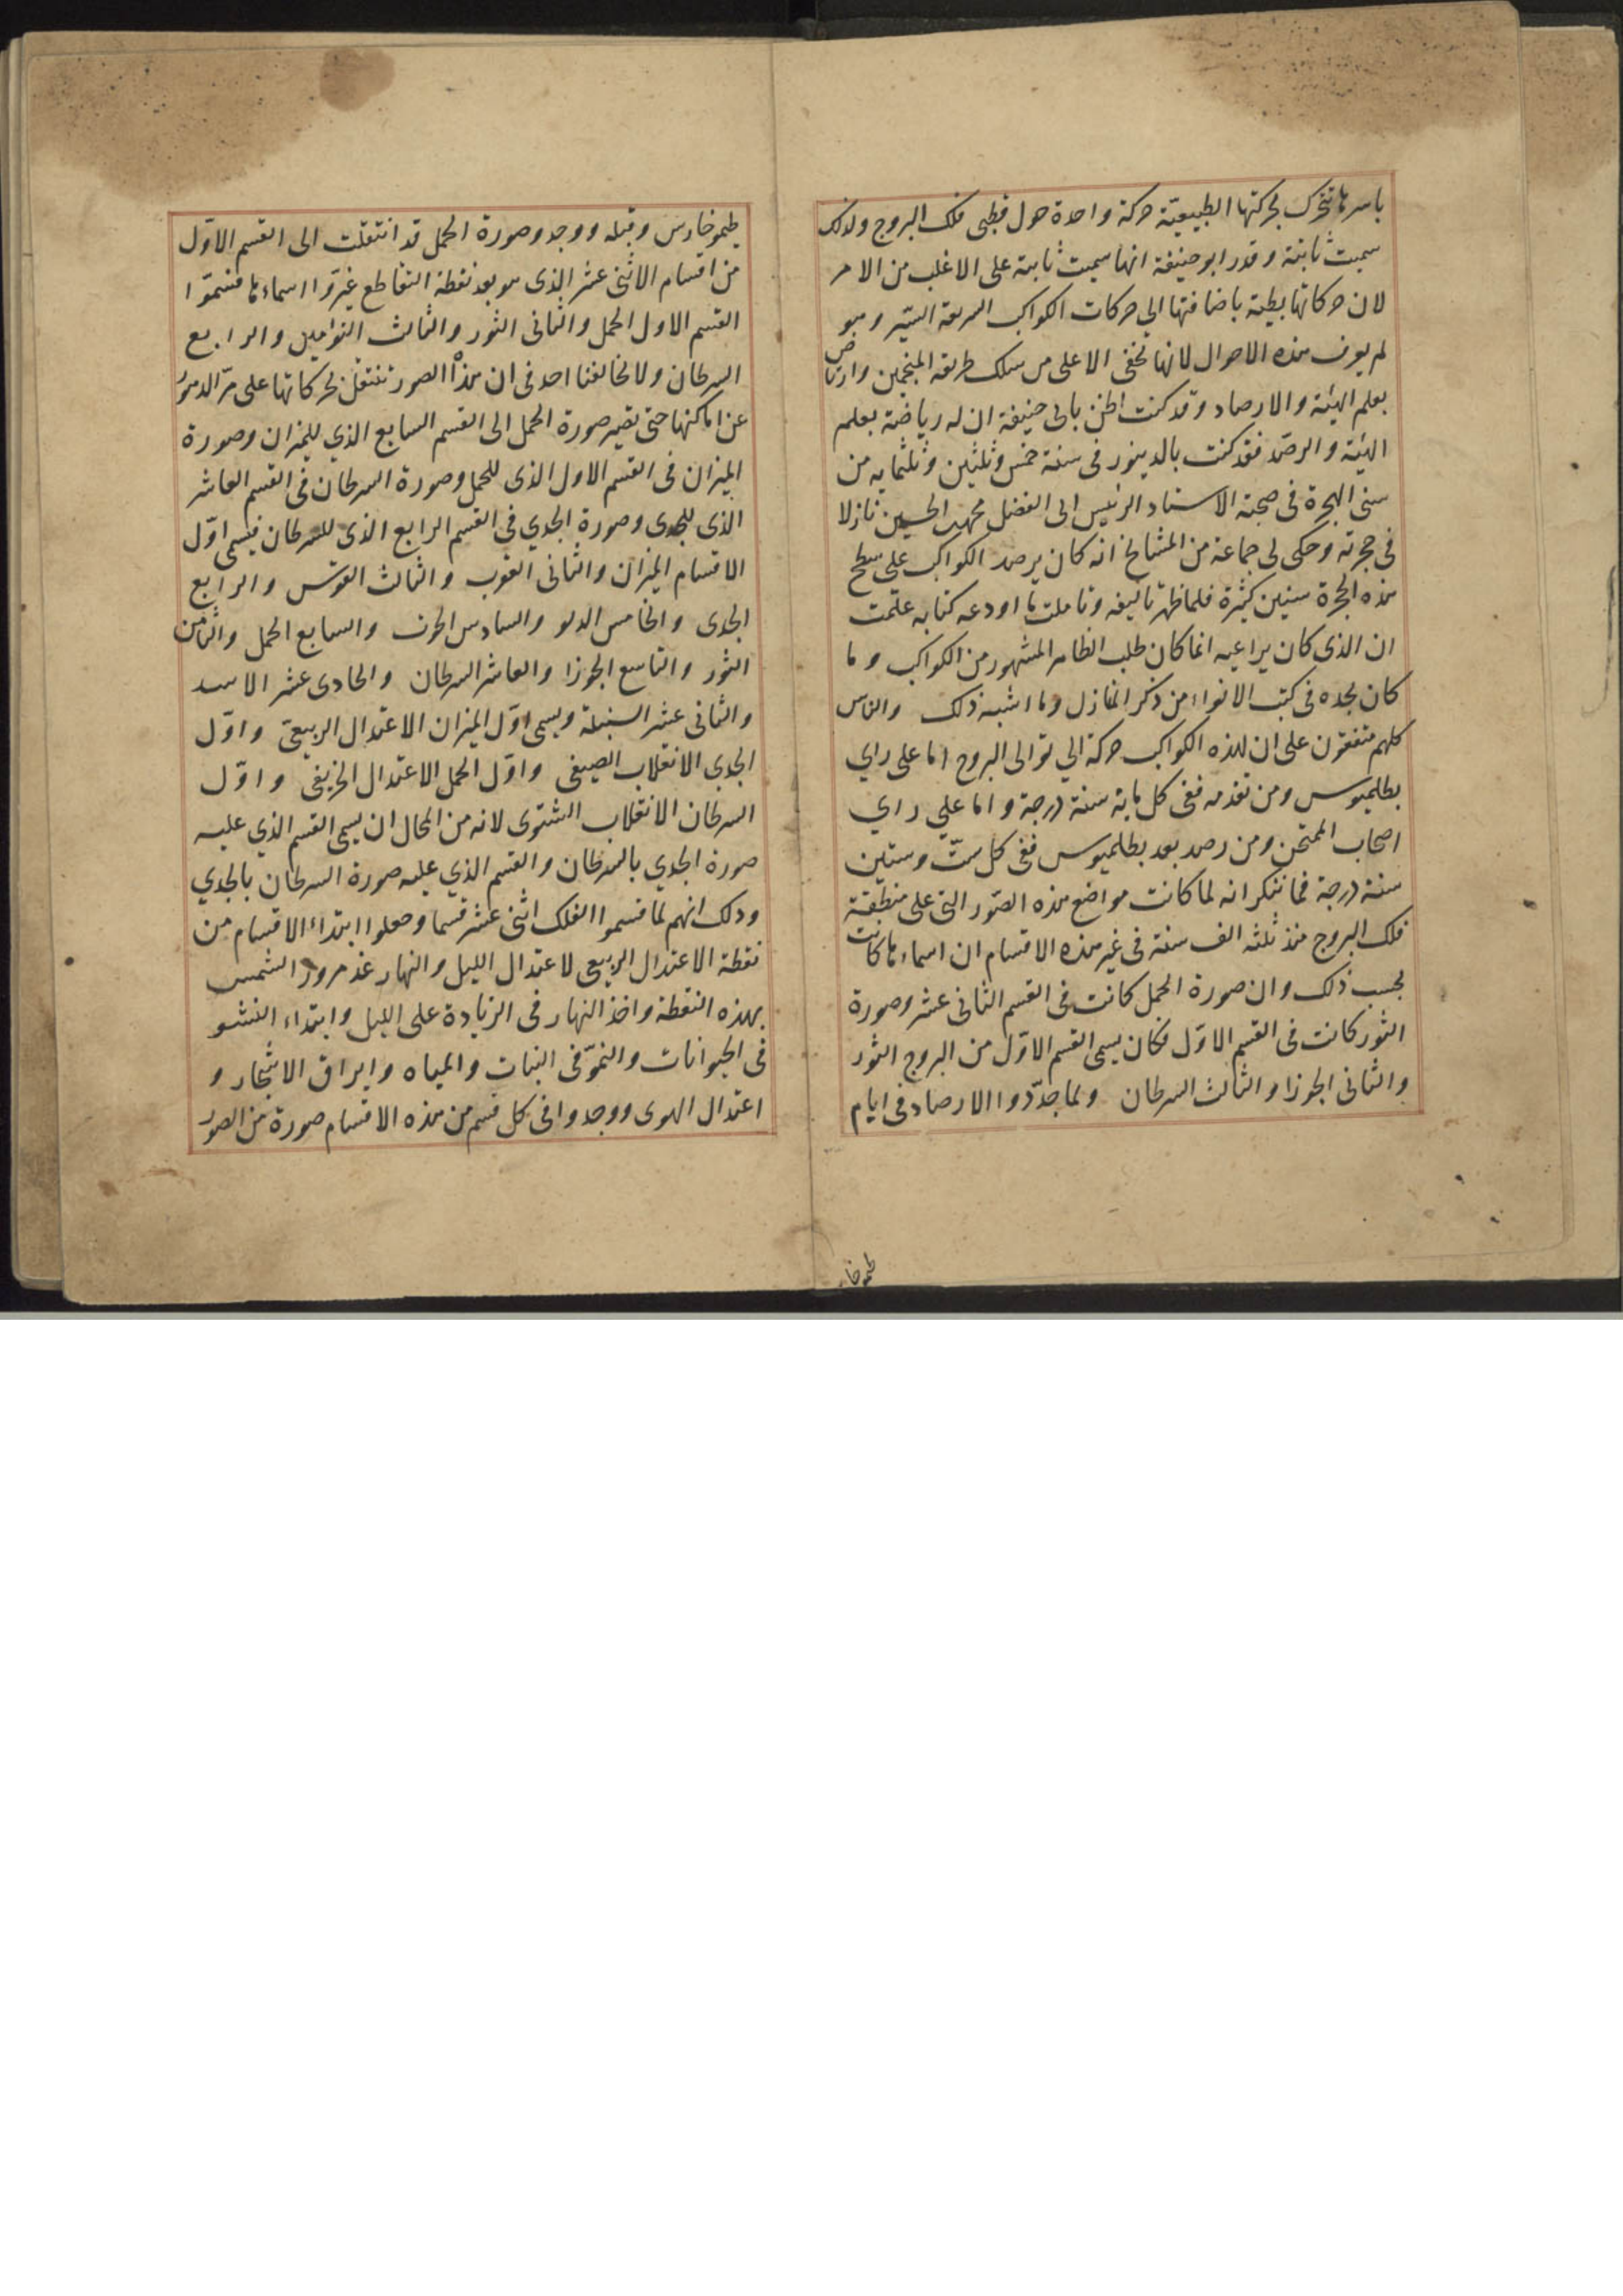 باسرها تتحرك بحركتها الطبيعيّة حركة واحدة حول قطبى فلك البروج ولذلك
سميت ثابتة وقدر ابو حنيفة انها سميت ثابتة على الاغلب من الامر
لان حركاتها بطية باضافتها الي حركات الكواكب السريعة السّير وهو
لم يعرف هذه الاحوال لانها تخفى الا على من سلك طريقة المنجمين وارتاض
بعلم الهيئة والارصاد وقد كنت اظن بابى حنيفة ان له رياضة بعلم
الهيئة والرصد فقد كنت بالدينور فى سنة خمس وثلثين وثلثمايه من
سنى الهجرة فى صحبة الاستاد الرئيس ابى الفضل محمد بن الحسين نازلا
فى حجرته وحكى لى جماعة من المشايخ انه كان يرصد الكواكب على سطح
هذه الحجرة سنين كثيرة فلما ظهر تاليفه وتاملت ما اودعه كتابه علمت
ان الذى كان يراعيه انما كان طلب الظاهر المشهور من الكواكب وما
كان يجده فى كتب الانواء من ذكر المنازل وما اشبه ذلك والناس
كلهم متفقون على ان لهذه الكواكب حركة الي توالى البروج اما على راي
بطلميوس ومن تقدمه ففى كل ماية سنة درجة واما علي راي
اصحاب الممتحن ومن رصد بعد بطلميوس ففى كل ستّ وستين
سنة درجة فما ننكر انه لما كانت مواضع هذه الصّور التى على منطقة
فلك البروج منذ ثلثه الف سنة فى غير هذه الاقسام ان اسماءها كانت
بحسب ذلك وان صورة الحمل كانت فى القسم الثانى عشر وصورة
الثور كانت فى القسم الاوّل فكان يسمى القسم الاوّل من البروج الثور
والثانى الجوزا والثالث السرطان ولما جدّدوا الارصاد فى ايام
طيموخا
طيموخارس وقبله ووجدو صورة الحمل قد انتقلت الى القسم الاوّل
من اقسام الاثنى عشر الذى هو بعد نقطة التقاطع غيّروا اسماءها فسمّوا
القسم الاول الحمل والثانى الثور والثالث التوامين والرابع
السرطان ولا يخالفنا احد فى ان هذه الصور تنتقل بحركاتها على مرّ الدهور
عن اماكنها حتى تصير صورة الحمل الى القسم السابع الذي للميزان وصورة
الميزان فى القسم الاول الذى للحمل وصورة السرطان فى القسم العاشر
الذى للجدى وصورة الجدي فى القسم الرابع الذى للسرطان فيسمى اوّل
الاقسام الميزان والثانى العقرب والثالث القوس والرابع
الجدى والخامس الدلو والسادس الحوت والسابع الحمل والثامن
الثور والتاسع الجوزا والعاشر السرطان والحادى عشر الاسد
والثانى عشر السنبلة ويسمى اوّل الميزان الاعتدال الربيعىّ واوّل
الجدى الانقلاب الصيفى واوّل الحمل الاعتدال الخريفى واوّل
السرطان الانقلاب الشتوى لانه من المحال ان يسمى القسم الذي عليه
صورة الجدي بالسرطان والقسم الذي عليه صورة السرطان بالجدي
وذلك انهم لما قسموا الفلك اثنى عشر قسما وجعلوا ابتداء الاقسام من
نقطة الاعتدال الربيعى لاعتدال الليل والنهار عند مرور الشمس
بهذه النقطة واخذ النهار فى الزيادة على الليل وابتداء النشو
فى الحيوانات والنموّ فى النبات والمياه وايراق الاشجار و
اعتدال الهوى ووجدوا فى كل قسم من هذه الاقسام صورة من الصور